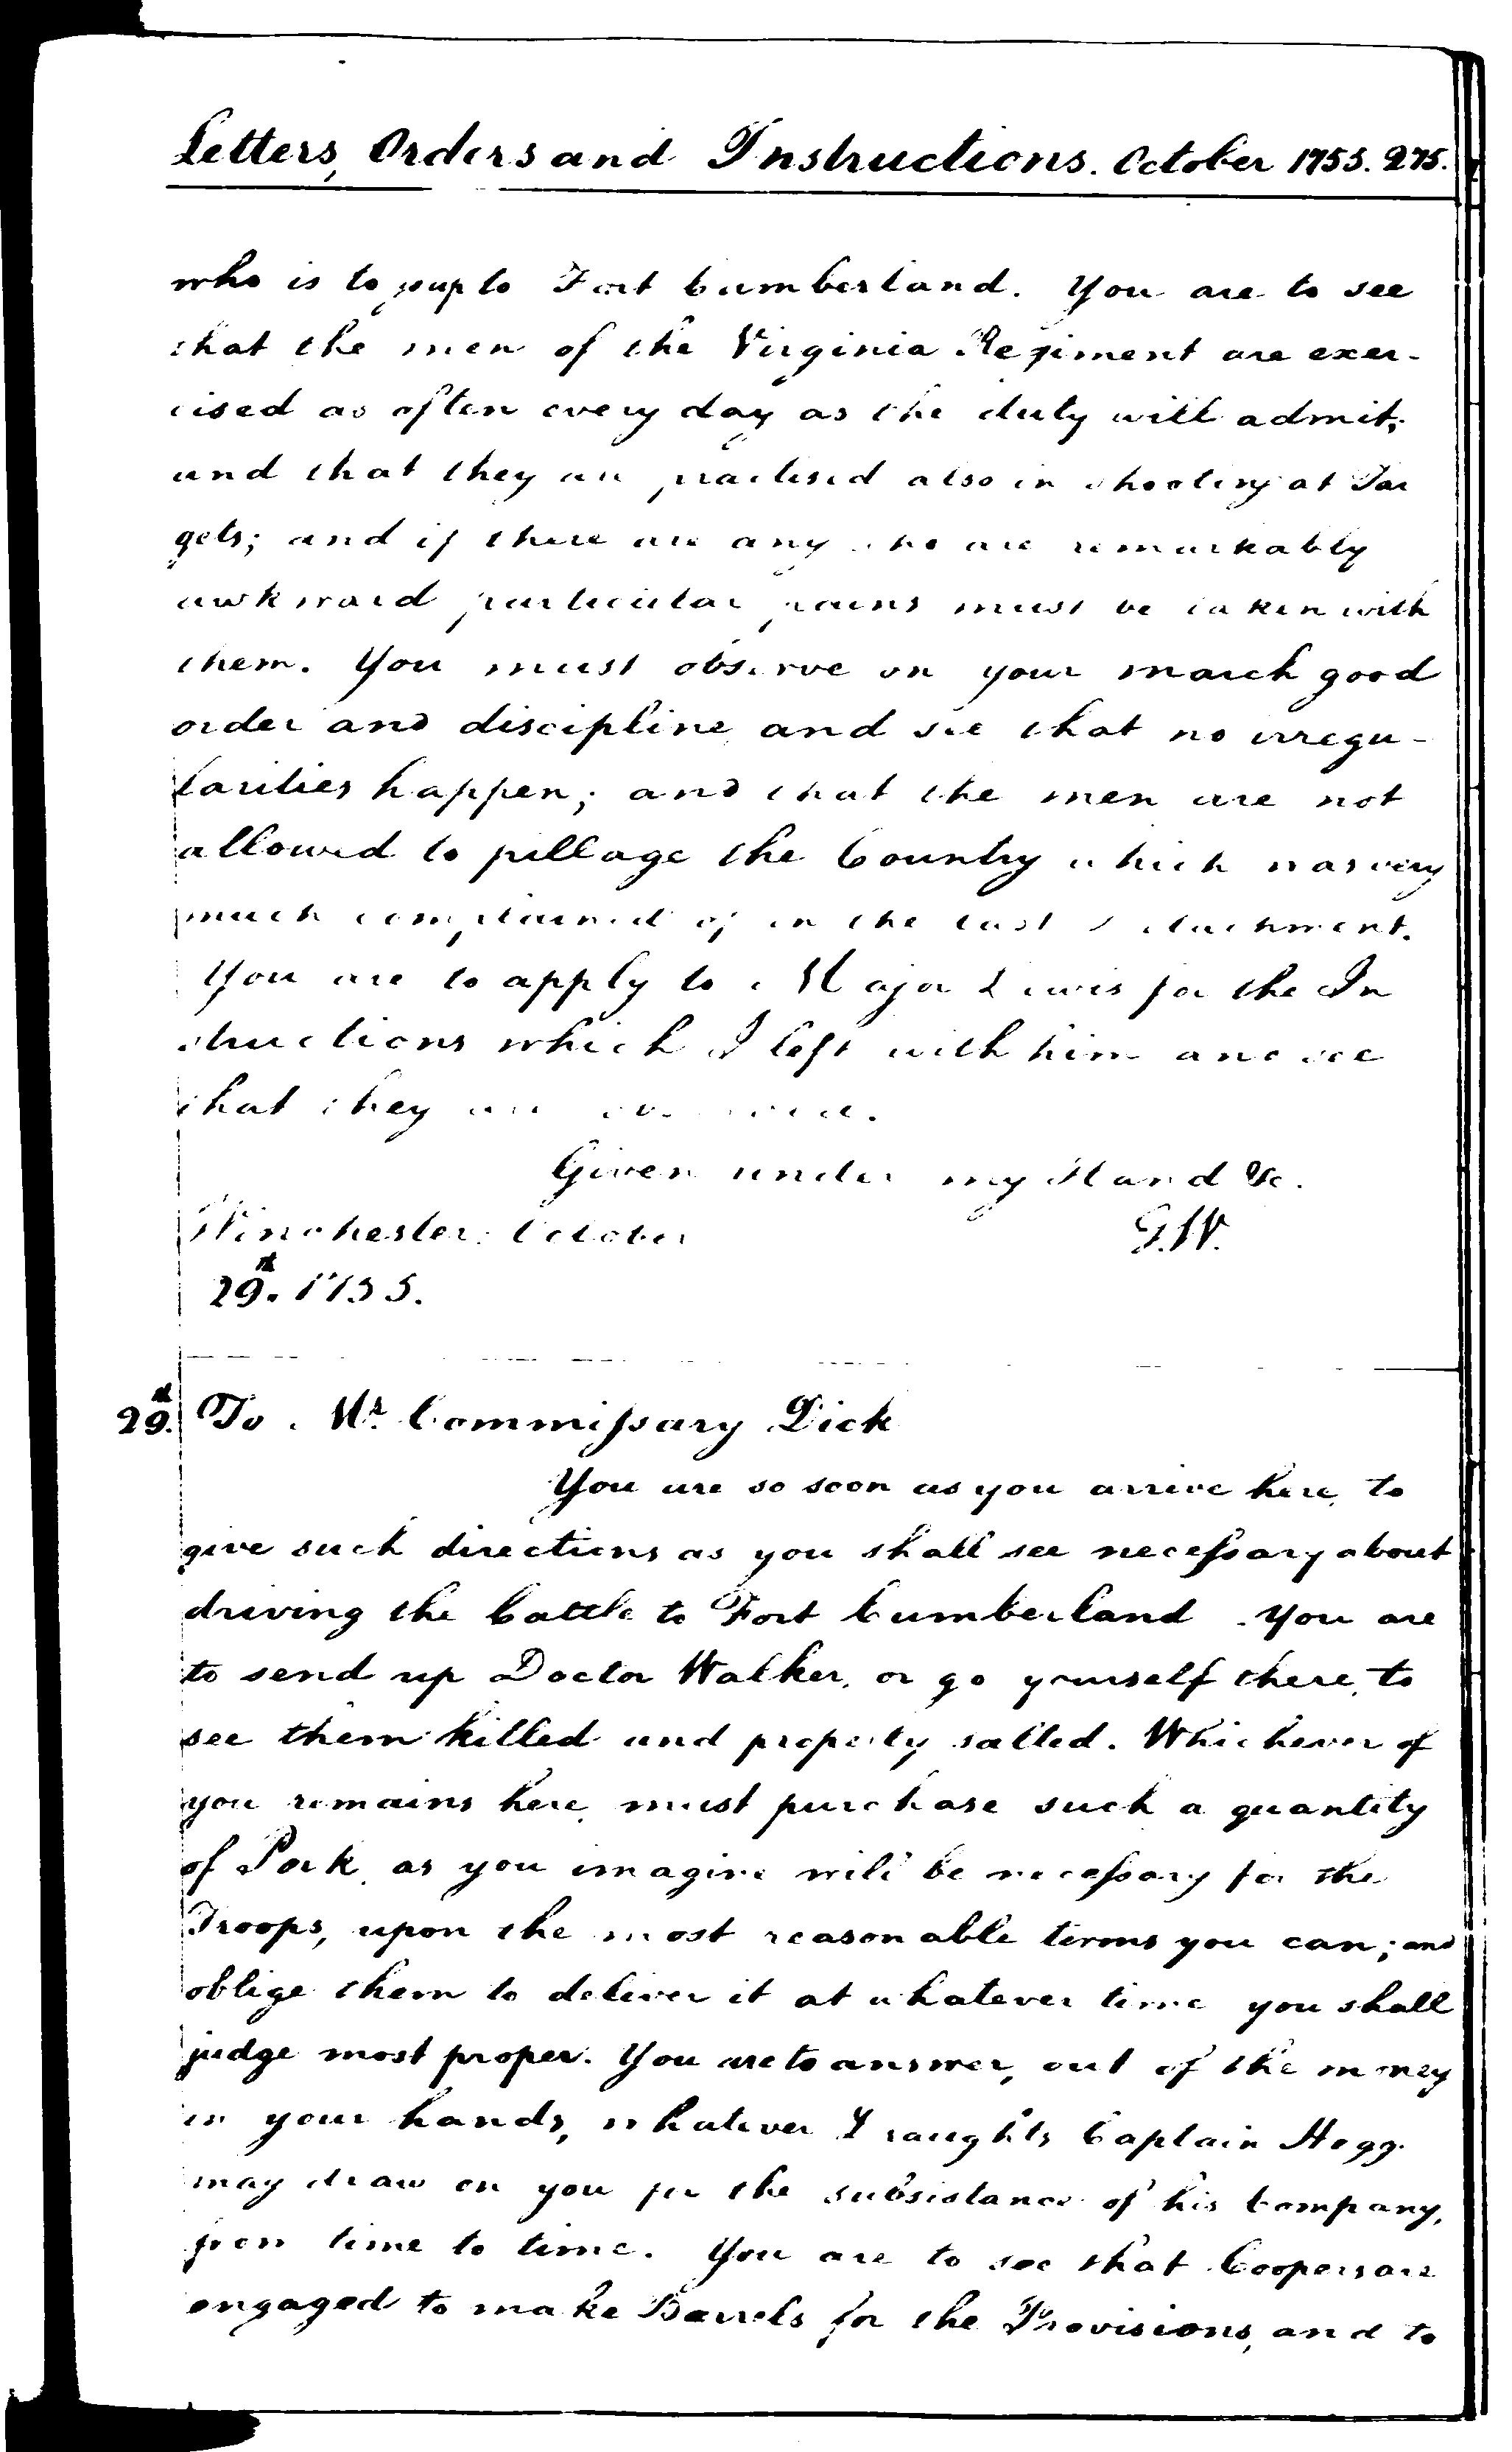 Letters, Orders and Instructions. October 1755. 275.
who is to go up to Fort Cumberland. You are to see
that the men of the Virginia Regiment are exer-
cised as often every day as the duty will admit;
and that they are practised also in shooting at Tar
gets; and if there are any who are remarkably
awkward particular pains must be taken with
them. You must observe on your march good
order and discipline and see that no irregu-
larities happen; and that the men are not
allowed to pillage the Country which was very
much complained of in the last Detachment.
You are to apply to Major Lewis for the In
structions which I left with him and see
that they are
Given under my Hand &c.
Winchester: October
G.W.
29th. 1755.
29th. To Mr. Commissary Dick
You are so soon as you arrive here, to
give such directions as you shall see necessary about
driving the Cattle to Fort Cumberland. You are
to send up Doctor Walker, or go yourself there, to
see them killed and properly salted. Whichever of
you remains here, must purchase such a quantity
of Pork, as you imagine will be necessary for the
Troops, upon the most reasonable terms you can; and
oblige them to deliver it at whatever time you shall
judge most proper. You are to answer, out of the money
in your hands, whatever Draughts Captain Hogg
may draw on you for the subsistance of his Company,
from time to time. You are to see that Coopers are
engaged to make Barrels for the Provisions, and to